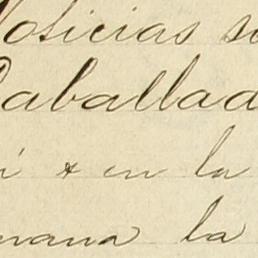 Noticias s
Caballad
i & en la
mana la